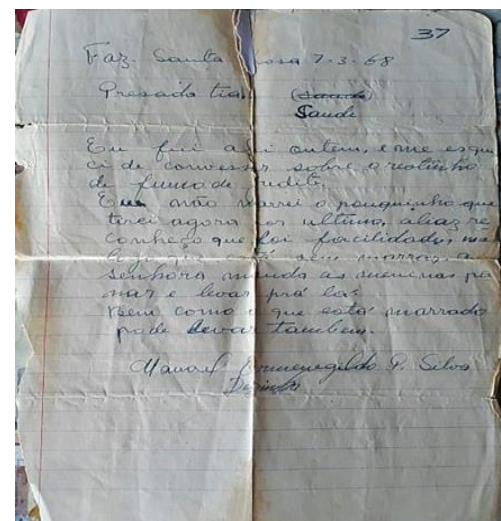 37
Faz. Santa Rosa 7-3-68
Presada tia. (Saude)
Saude
Eu fui ali ontem, e me esqui
ci de convessar sobre o restinho
de fumo de
Eu não marrei o pouquinho que
tirei agora por ultimo, aliaz re
conheço que foi facilidade, ma
está sem marrar, a
senhora manda as meninas pa
nar e levar prá lá.
Bem como o que está marrado
pode levar tambem.
Manoel Ermenegildo P. Silva